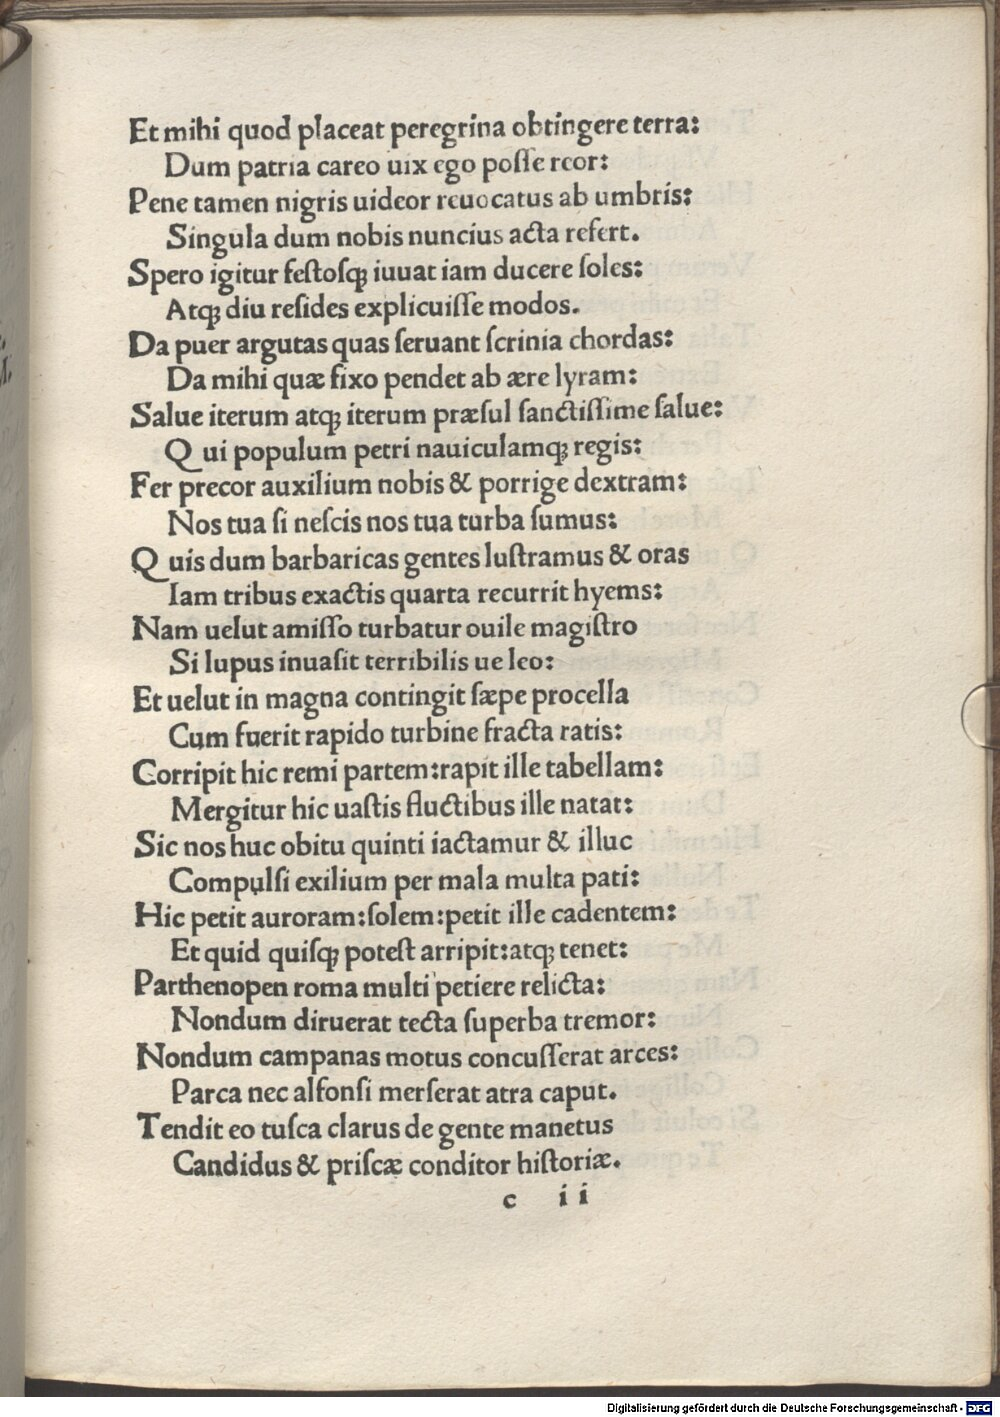 Et mihi quod placeat peregrina obtingere terra:
Dum patria careo uix ego posse reor:
Pene tamen nigris uideor reuocatus ab umbris:
Singula dum nobis nuncius acta refert.
Spero igitur festosqꝫ iuuat iam ducere soles:
Atqꝫ diu resides explicuisse modos.
Da puer argutas quas seruant scrinia chordas:
Da mihi quæ fixo pendet ab ære lyram:
Salue iterum atqꝫ iterum præsul sanctissime salue:
Q ui populum petri nauiculamqꝫ regis:
Fer precor auxilium nobis & porrige dextram:
Nos tua si nescis nos tua turba sumus:
Q uis dum barbaricas gentes lustramus & oras
Iam tribus exactis quarta recurrit hyems:
Nam uelut amisso turbatur ouile magistro
Si lupus inuasit terribilis ue leo:
Et uelut in magna contingit sæpe procella
Cum fuerit rapido turbine fracta ratis:
Corripit hic remi partem:rapit ille tabellam:
Mergitur hic uastis fluctibus ille natat:
Sic nos huc obitu quinti iactamur & illuc
Compulsi exilium per mala multa pati:
Hic petit auroram:solem:petit ille cadentem:
Et quid quisqꝫ potest arripit:atqꝫ tenet:
Parthenopen roma multi petiere relicta:
Nondum diruerat tecta superba tremor:
Nondum campanas motus concusserat arces:
Parca nec alfonsi merserat atra caput.
Tendit eo tusca clarus de gente manetus
Candidus & priscæ conditor historiæ.
c ii
Digitalisierung gefördert durch die Deutsche Forschungsgemeinschaft - DFG